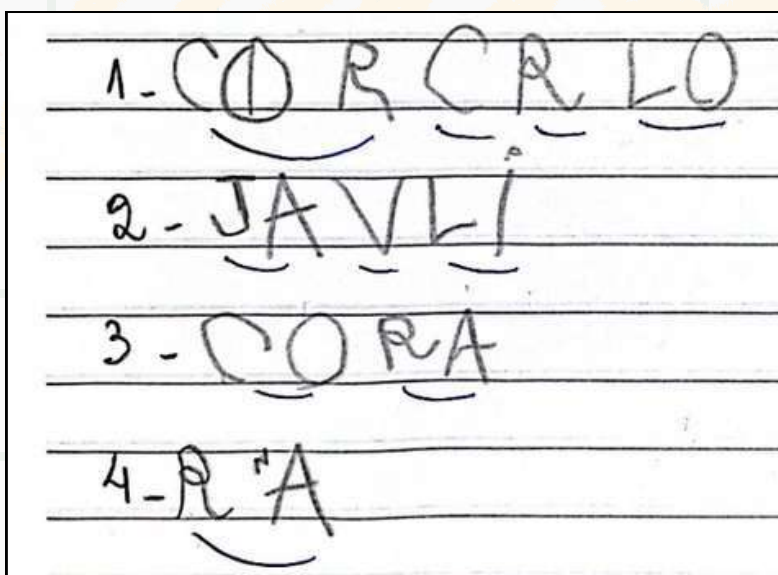 1- CO R C R LO
2- JAVLi
3- CORA
4- R A